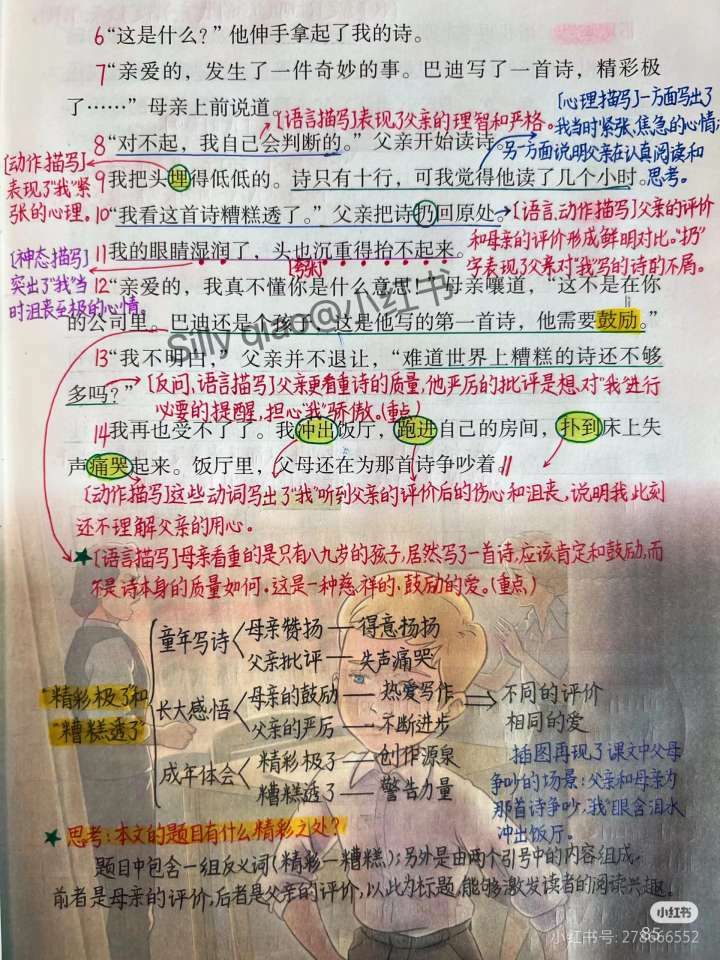 6“这是什么？”他伸手拿起了我的诗。
7“亲爱的，发生了一件奇妙的事。巴迪写了一首诗，精彩极
了……”母亲上前说道。
[语言描写]表现了父亲的理智和严格。
[心理描写]一方面写出了
我当时紧张、焦急的心情；
另一方面说明父亲在认真阅读和
思考。
8“对不起，我自己会判断的。”父亲开始读诗。
[动作描写]
表现了“我”紧
张的心理。
9我把头埋得低低的。诗只有十行，可我觉得他读了几个小时。
10“我看这首诗糟糕透了。”父亲把诗扔回原处。
[语言、动作描写]父亲的评价
和母亲的评价形成鲜明对比。“扔”
字表现了父亲对“我”写的诗的不屑。
11我的眼睛湿润了，头也沉重得抬不起来。
[夸张]
[神态描写]
突出了“我”当
时沮丧至极的心情。
12“亲爱的，我真不懂你是什么意思！”母亲嚷道，“这不是在你
的公司里。巴迪还是个孩子，这是他写的第一首诗，他需要鼓励。”
13“我不明白，”父亲并不退让，“难道世界上糟糕的诗还不够
多吗？”
[反问、语言描写]父亲更看重诗的质量，他严厉的批评是想对“我”进行
必要的提醒，担心“我”骄傲。(重点)
14我再也受不了了。我冲出饭厅，跑进自己的房间，扑到床上失
声痛哭起来。饭厅里，父母还在为那首诗争吵着。
[动作描写]这些动词写出了“我”听到父亲的评价后的伤心和沮丧，说明我此刻
还不理解父亲的用心。
★[语言描写]母亲看重的是只有八九岁的孩子，居然写了一首诗，应该肯定和鼓励，而
不是诗本身的质量如何。这是一种慈祥的、鼓励的爱。(重点)
“精彩极了”和
“糟糕透了”
童年写诗
母亲赞扬—得意扬扬
父亲批评—失声痛哭
长大感悟
母亲的鼓励—热爱写作
父亲的严厉—不断进步
成年体会
精彩极了—创作源泉
糟糕透了—警告力量
⇒不同的评价
相同的爱
插图再现了课文中父母
争吵的场景：父亲和母亲为
那首诗争吵，“我”眼含泪水
冲出饭厅。
★思考：本文的题目有什么精彩之处？
题目中包含一组反义词(精彩—糟糕)；另外是由两个引号中的内容组成，
前者是母亲的评价，后者是父亲的评价，以此为标题，能够激发读者的阅读兴趣。
85
Silly qiao@小红书
小红书
小红书号: 278666552